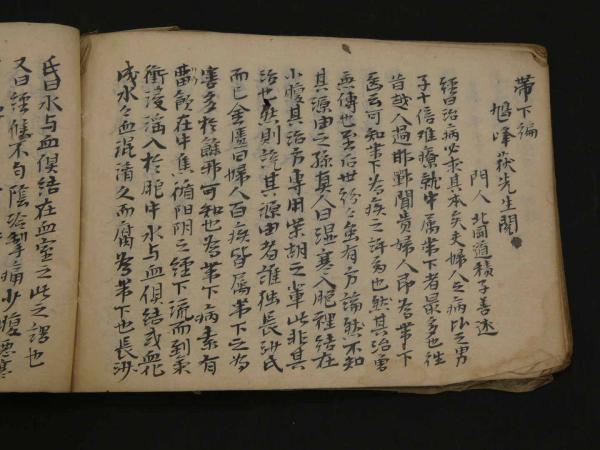 帯下編
旭峰荻先生閲
門人 北岡道積子善述
経曰治病必求其本矣夫婦人之病比之男
子十倍难療就中属帯下者最多也往
昔越人過邯鄲聞貴婦人即為帯下
医云可知帯下為疾之許多也然其治
無傳也至后世紛々虽有方論然不知
其源由之孫真人曰湿寒入胞裡结在
小腹其治方専用柴胡之輩此非其
治也然則説其源由者誰独長沙氏
而已金匱曰婦人百疾皆属帯下之為
害多於可知也為帯下病素有
畜飲在中焦循阳明之経下流而到于
衝浸淫入於胞中水与血俱结或血化
成水々血混淆久而腐為帯下也長沙
氏曰水与血俱结在血室之此之謂也
又曰経候不匀陰冷掣痛少腹悪寒